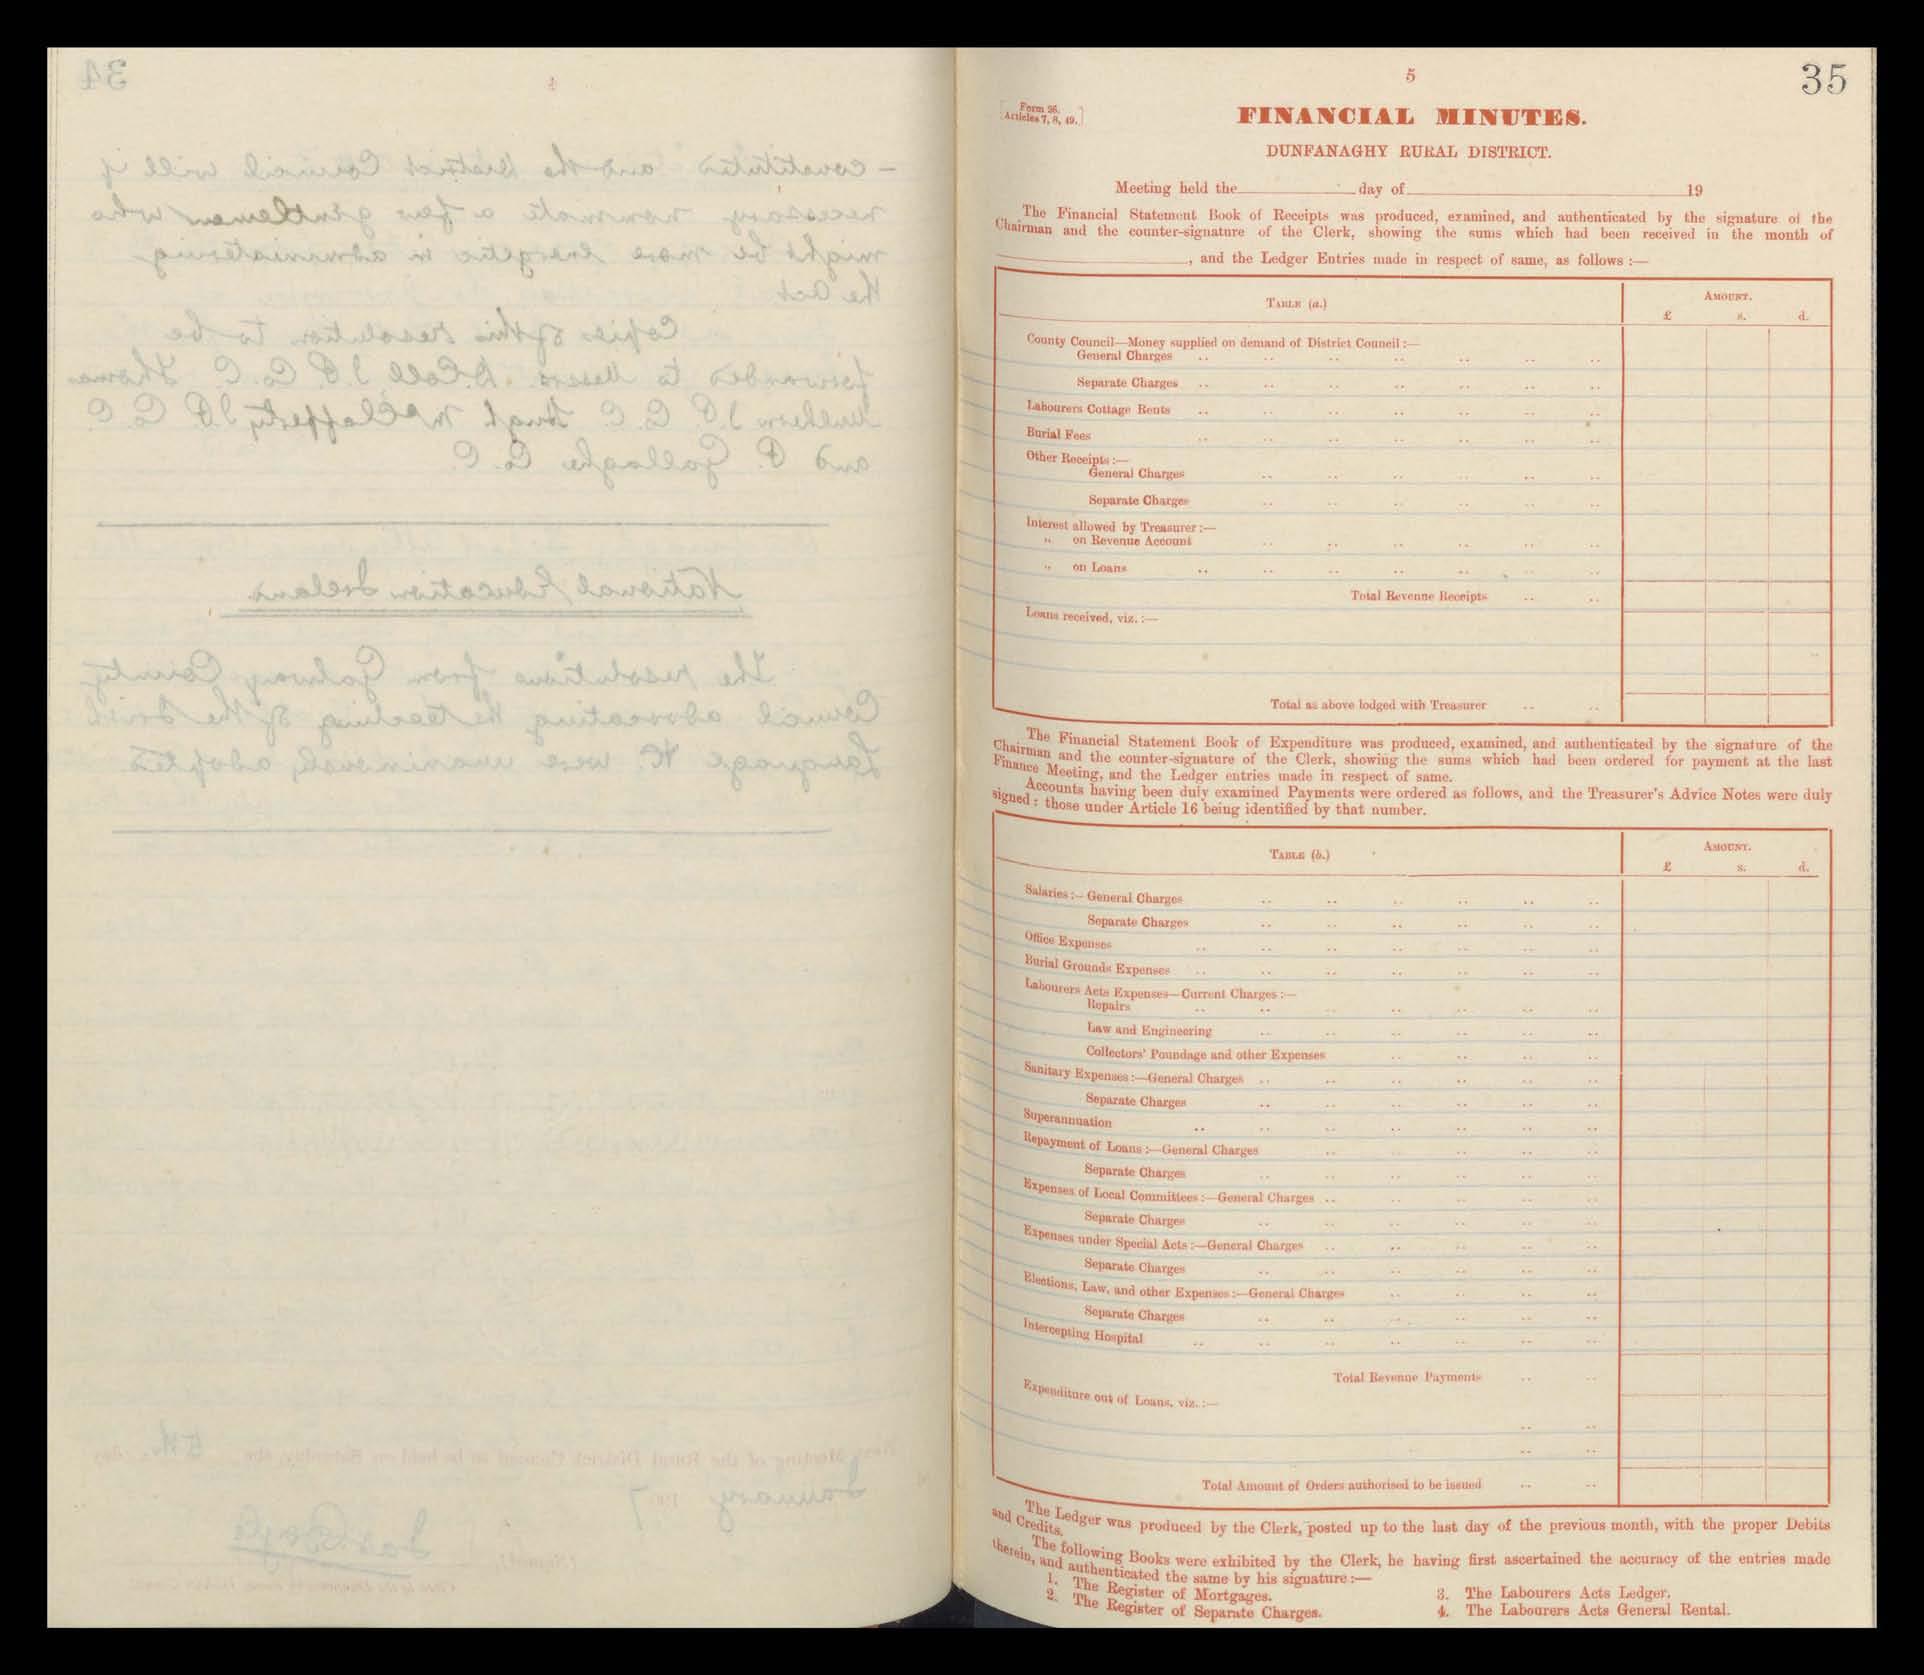 34
4
– constituted and the District Council will if
necessary nominate a few gentlemen who
might be more energetic in administering
the Act
Copies of this resolution to be
forwarded to Messrs. D. Coll J.P. Co. C. Thomas
J.P. Co. C. Hugh McClafferty J.P. Co. C.
and P. Gallagher Co. C.
National Education Ireland
The resolutions from Galway County
Council advocating the teaching of the Irish
Language &c. were unanimously adopted
Next Meeting of the Rural District Council to be held on Saturday, the 5th. day
January 1907
(Signed),
Form 26.
[Articles 7, 8, 49.]
5
35
FINANCIAL MINUTES.
DUNFANAGHY RURAL DISTRICT.
Meeting held the day of 19
The Financial Statement Book of Receipts was produced, examined, and authenticated by the signature of the
Chairman and the counter-signature of the Clerk, showing the sums which had been received in the month of
, and the Ledger Entries made in respect of same, as follows :—
TABLE (a.)
AMOUNT.
£ s. d.
County Council—Money supplied on demand of District Council :—
General Charges .. .. .. .. .. .. ..
Separate Charges .. .. .. .. .. .. ..
Labourers Cottage Rents .. .. .. .. .. .. ..
Burial Fees .. .. .. .. .. .. ..
Other Receipts :—
General Charges .. .. .. .. .. ..
Separate Charges .. .. .. .. .. ..
Interest allowed by Treasurer :—
„ on Revenue Account .. .. .. .. .. ..
„ on Loans .. .. .. .. .. .. ..
Total Revenue Receipts .. ..
Loans received, viz. :—
Total as above lodged with Treasurer .. ..
The Financial Statement Book of Expenditure was produced, examined, and authenticated by the signature of the
Chairman and the counter-signature of the Clerk, showing the sums which had been ordered for payment at the last
Finance Meeting, and the Ledger entries made in respect of same.
Accounts having been duly examined Payments were ordered as follows, and the Treasurer's Advice Notes were duly
signed : those under Article 16 being identified by that number.
TABLE (b.)
AMOUNT.
£ s. d.
Salaries :—General Charges .. .. .. .. .. ..
Separate Charges .. .. .. .. .. ..
Office Expenses .. .. .. .. .. .. ..
Burial Grounds Expenses .. .. .. .. .. .. ..
Labourers Acts Expenses—Current Charges :—
Repairs .. .. .. .. .. .. ..
Law and Engineering .. .. .. .. .. ..
Collectors' Poundage and other Expenses .. .. .. ..
Sanitary Expenses :—General Charges .. .. .. .. .. ..
Separate Charges .. .. .. .. .. ..
Superannuation .. .. .. .. .. .. ..
Repayment of Loans :—General Charges .. .. .. .. ..
Separate Charges .. .. .. .. .. ..
Expenses of Local Committees :—General Charges .. .. .. .. ..
Separate Charges .. .. .. .. .. ..
Expenses under Special Acts :—General Charges .. .. .. .. ..
Separate Charges .. .. .. .. .. ..
Elections, Law, and other Expenses :—General Charges .. .. .. ..
Separate Charges .. .. .. .. .. ..
Intercepting Hospital .. .. .. .. .. .. ..
Total Revenue Payments .. ..
Expenditure out of Loans, viz. :—
.. ..
.. ..
Total Amount of Orders authorised to be issued .. ..
The Ledger was produced by the Clerk, posted up to the last day of the previous month, with the proper Debits
and Credits.
The following Books were exhibited by the Clerk, he having first ascertained the accuracy of the entries made
therein, and authenticated the same by his signature :—
1. The Register of Mortgages.
2. The Register of Separate Charges.
3. The Labourers Acts Ledger.
4. The Labourers Acts General Rental.